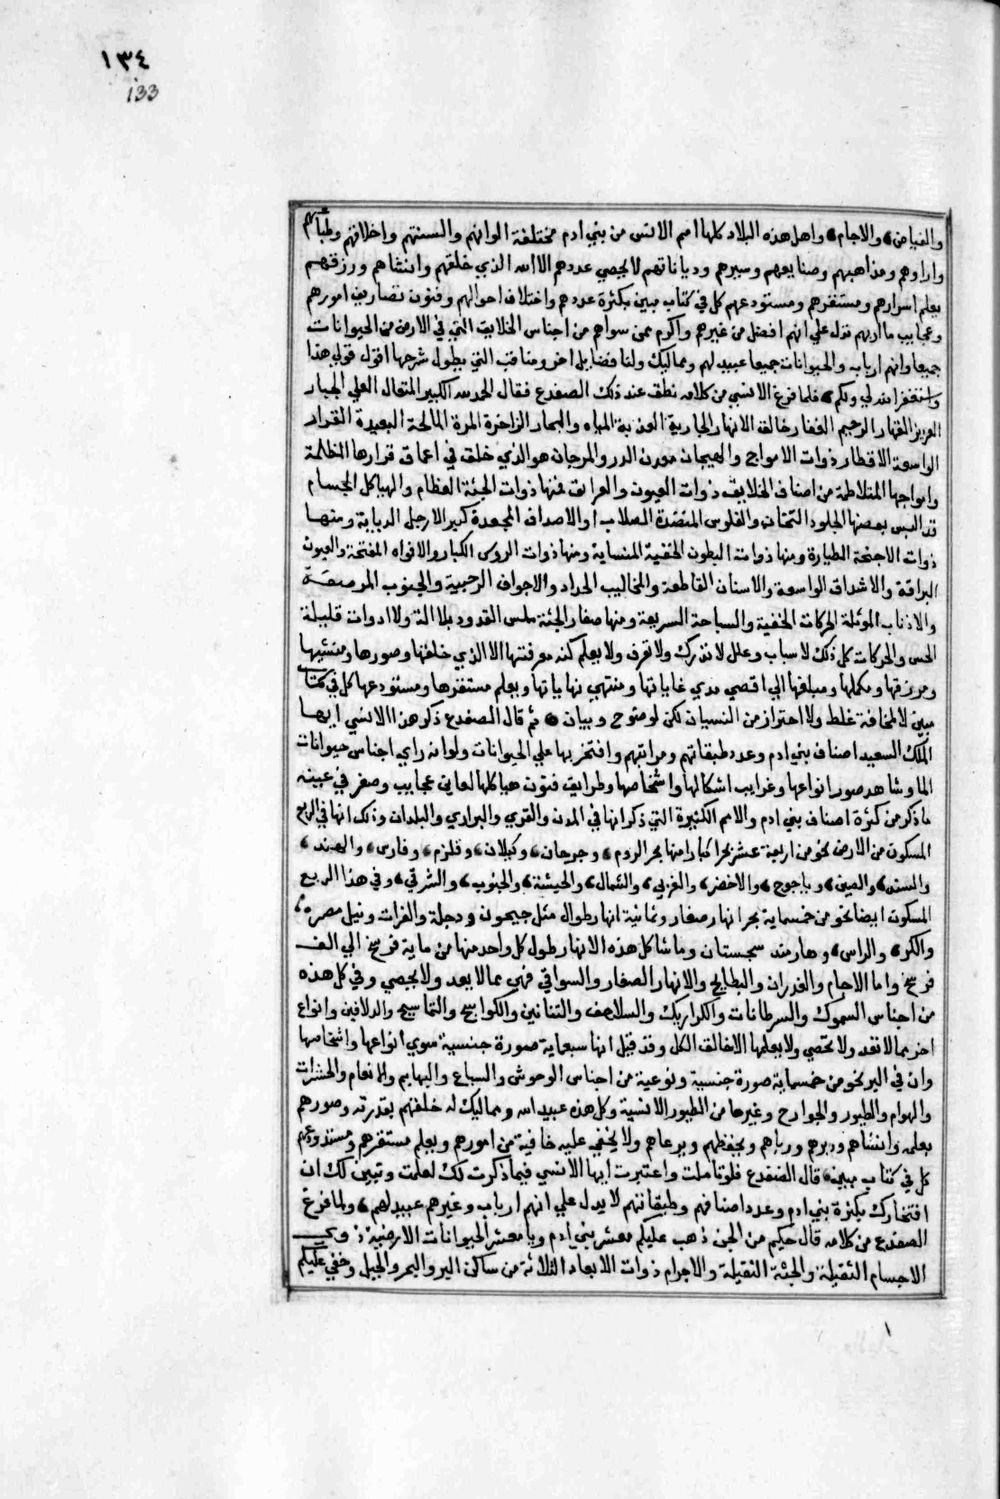 ١٣٤
133
والغياض، والاجام، واهل هذه البلاد كلها امم الانس من بني ادم مختلفة الوانهم والسنتهم واخلاقهم وطبائعهم
واراوهم ومذاهبهم وصنايعهم وسيرهم ودياناتهم لا يحصي عددهم الا الله الذي خلقهم وانشاهم ورزقهم
يعلم اسرارهم ومستقرهم ومستودعهم كل في كتاب مبين بكثرة عددهم واختلاف احوالهم وفنون تصاريف امورهم
وعجايب ماربهم تدل علي انهم افضل من غيرهم واكرم ممن سواهم من اجناس الخلايق التي في الارض من الحيوانات
جميعا وانهم ارباب والحيوانات جميعا عبيد لهم ومماليك ولنا فضايل اخر ومناقب التي يطول شرحها اقول قولي هذا
واستغفر الله لي ولكم، فلما فرغ الانسي من كلامه نطق عند ذلك الضفدع فقال الحمد لله الكبير المتعال العلي الجبار
العزيز القهار الرحيم الغفار خالق الانهار الجارية العذبة المياه والبحار الزاخرة المرة المالحة البعيدة القرار
الواسعة الاقطار ذوات الامواج والهيجان معدن الدر والمرجان هو الذي خلق في اعماق قرارها المظلمة
وامواجها المتلاطمة من اصناف الخلايق ذوات العيون والعراىق فمنها ذوات الجثة العظام والهياكل الجسام
قد البس بعضها الجلود الثخان والفلوس المنضدة الصلاب او الاصداف المجعدة كثير الارجل الدبابة ومنها
ذوات الاجنحة الطيارة ومنها ذوات البطون الخفية المنسابة ومنها ذوات الروس الكبار والافواه المفتحة والعيون
البراقة والاشداق الواسعة والاسنان القاطعة والمخاليب الحداد والاجواف الرحبية والجنوب المرصعة
والاذناب الموئلة الحركات الخفية والسباحة السريعة ومنها صغار الجثة ملس القدود بلا الة ولا ادوات قليلة
الحس والحركات كل ذلك لاسباب وعلل لا تدرك ولا تعرف ولا يعلم كنه معرفتها الا الذي خلقها وصورها ومنشيها
ومرزقها ومكملها ومبلغها الي اقصي مدي غاياتها ومنتهي نهاياتها ويعلم مستقرها ومستودعها كل في كتاب
مبين لا لمخافة غلط ولا احتراز من النسيان لكن لوضوح وبيان ● ثم قال الضفدع ذكر هذا الانسي ايها
الملك السعيد اصناف بني ادم وعدد طبقاتهم ومراتبهم وافتخر بها علي الحيوانات ولو انه راي اجناس حيوانات
الما وشاهد صور انواعها وغرايب اشكالها واشخاصها وطرايق فنون هياكلها لعاين عجايب وصغر في عينه
ما ذكر من كثرة اصناف بني ادم والامم الكثيرة التي ذكر انها في المدن والقري والبراري والبلدان وذلك انها في الربع
المسكون من الارض نحو من اربعة عشر بحرا كبارا منها بحر الروم، وجرجان، وكيلان، وقلزم، وفارس، والهند،
والسند، والصين، وياجوج، والاخضر، والغربي، والشمال، والحبشة، والجنوب، والشرقي، وفي هذا الربع
المسكون ايضا نحو من خمسماية بحر انهار صغار وثمانية انهار طوال مثل جيحون ودجلة والفرات ونيل مصر،
والكر، والراس، وهارمند سجستان وما شاكل هذه الانهار طول كل واحد منها من ماية فرسخ الي الف
فرسخ واما الاجام والغدران والبطايح والانهار الصغار والسواقي فهي مما لا يعد ولا يحصي وفي كل هذه
من اجناس السموك والسرطانات والكواريك والسلاحف والتنانين والكواسج والتماسيح والدلافين وانواع
اخر مما لا تعد ولا تحصي ولا يعلمها الا خالق الكل وقد قيل انها سبعماية صورة جنسية سوي انواعها واشخاصها
وان في البر نحو من خمسماية صورة جنسية ونوعية من اجناس الوحوش والسباع والبهايم والانعام والحشرات
والهوام والطيور والجوارح وغيرها من الطيور الانسية وكل هذه عبيد الله ومماليك له خلقهم بقدرته وصورهم
بعلمه وانشاهم ودبرهم ورباهم ويحفظهم ويرعاهم ولا يخفي عليه خافية من امورهم ويعلم مستقرهم ومستودعهم
كل في كتاب مبين، قال الضفدع فلو تاملت واعتبرت ايها الانسي فيما ذكرت لك لعلمت وتبين لك ان
افتخارك بكثرة بني ادم وعدد اصنافهم وطبقاتهم لا يدل علي انهم ارباب وغيرهم عبيد لهم، ولما فرغ
الضفدع من كلامه قال حكيم من الجن ذهب عليكم معشر بني ادم ويا معشر الحيوانات الارضية ذوي
الاجسام الثقيلة والجثة الثقيلة والاجرام ذوات الابعاد الثلاثة من ساكن البر والبحر والجبل وخفي عليكم
١